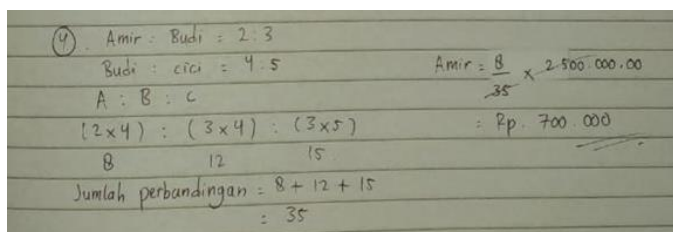 4. Amir : Budi = 2 : 3
Budi : cici = 4 : 5
A : B : C
(2 x 4) : (3 x 4) : (3 x 5)
8 12 15
Jumlah perbandingan = 8 + 12 + 15
: 35
Amir = 8/35 x 2.500.000.00
: Rp. 700.000